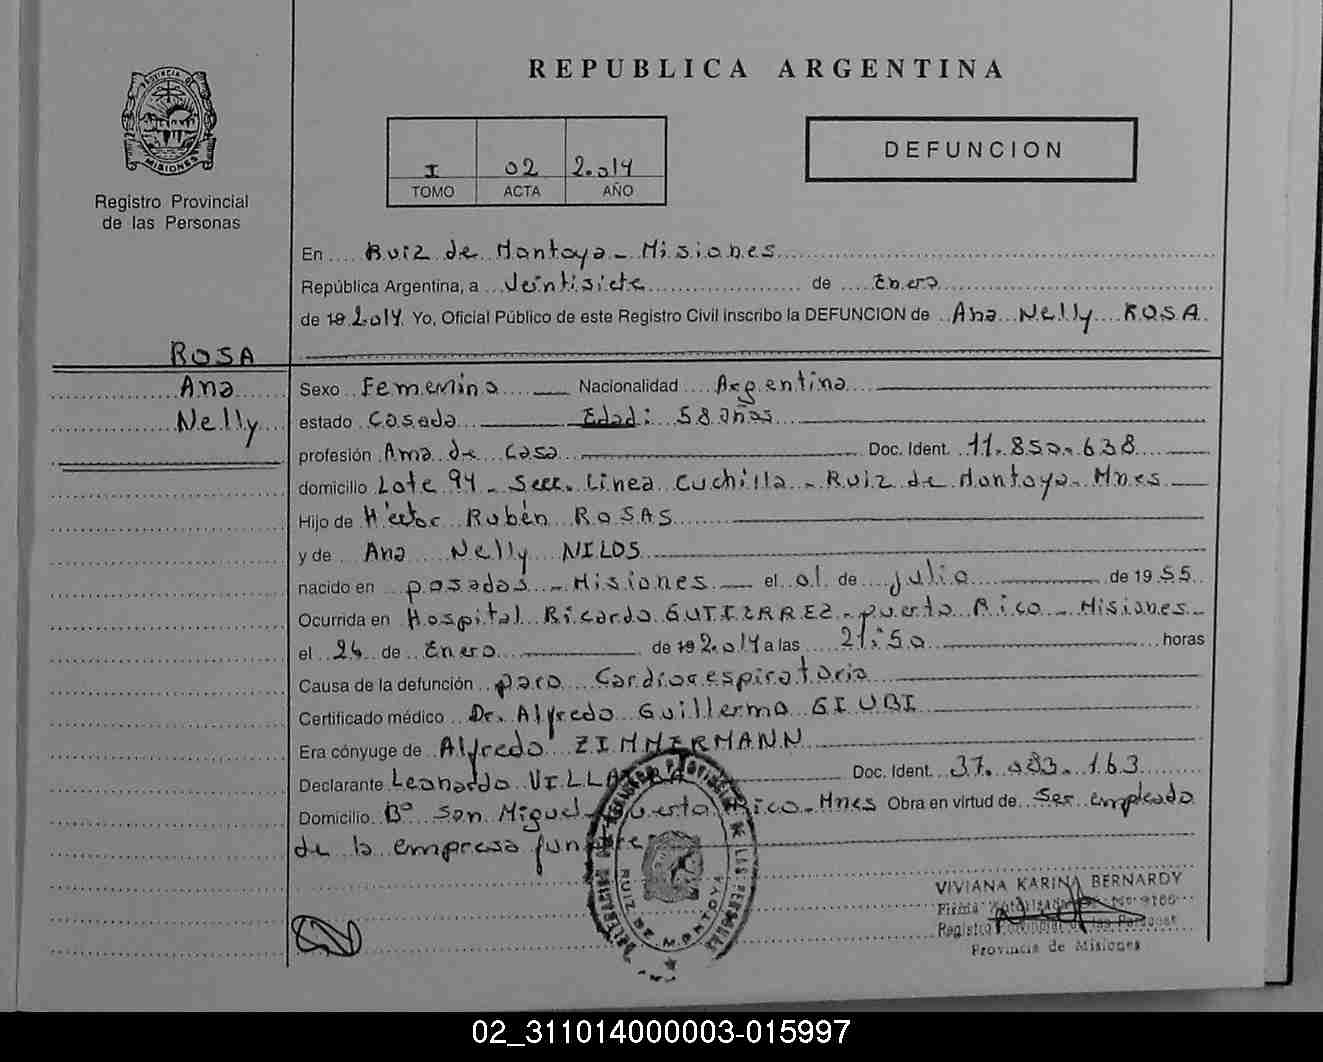 REPUBLICA ARGENTINA
PROVINCIA DE
MISIONES
Registro Provincial
de las Personas
I 02 2.014
TOMO ACTA AÑO
DEFUNCION
En Ruiz de Montoya - Misiones
República Argentina, a Veintisiete de Enero
de 19 2.014 Yo, Oficial Público de este Registro Civil inscribo la DEFUNCION de Ana Nelly ROSA
ROSA
Ana
Nelly
Sexo Femenino Nacionalidad Argentina
estado Casada Edad: 58 años
profesión Ama de Casa Doc. Ident. 11.850.638
domicilio Lote 94 - Secc. Linea Cuchilla - Ruiz de Montoya - Mnes
Hijo de Héctor Rubén ROSAS
y de Ana Nelly NILOS
nacido en posadas - Misiones el 01 de julio de 1955
Ocurrida en Hospital Ricardo GUTIERREZ - puerto Rico - Misiones -
el 26 de Enero de 19 2.014 a las 21:50 horas
Causa de la defunción paro Cardiorespiratorio
Certificado médico Dr. Alfredo Guillermo GIUBI
Era cónyuge de Alfredo ZIMMERMANN
Declarante Leonardo Doc. Ident. 37.083.163
Domicilio Bº San Miguel - Puerto Rico - Mnes Obra en virtud de Ser empleado
de la empresa funebre
RUIZ DE MONTOYA
VIVIANA KARINA BERNARDY
Firma Autorizada
Registro Provincial de las Personas
Provincia de Misiones
02_311014000003-015997